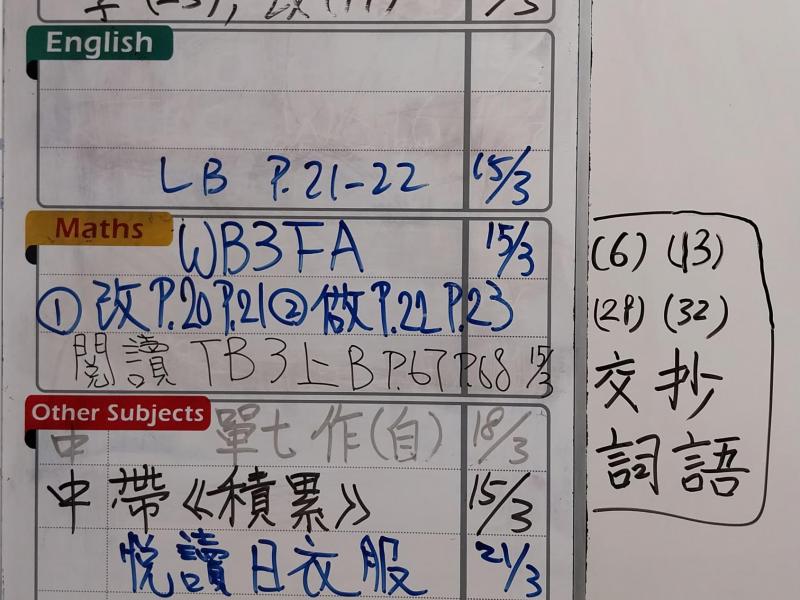 English
LB P.21-22 15/3
Maths WB3FA 15/3
① 改P.20 P.21 ② 做P.22 P.23
閱讀 TB3上B P.67 P.68 15/3
Other Subjects
中 單七作(自) 18/3
中 帶《積累》 15/3
悅讀日衣服 21/3
(6) (13)
(29) (32)
交抄
詞語